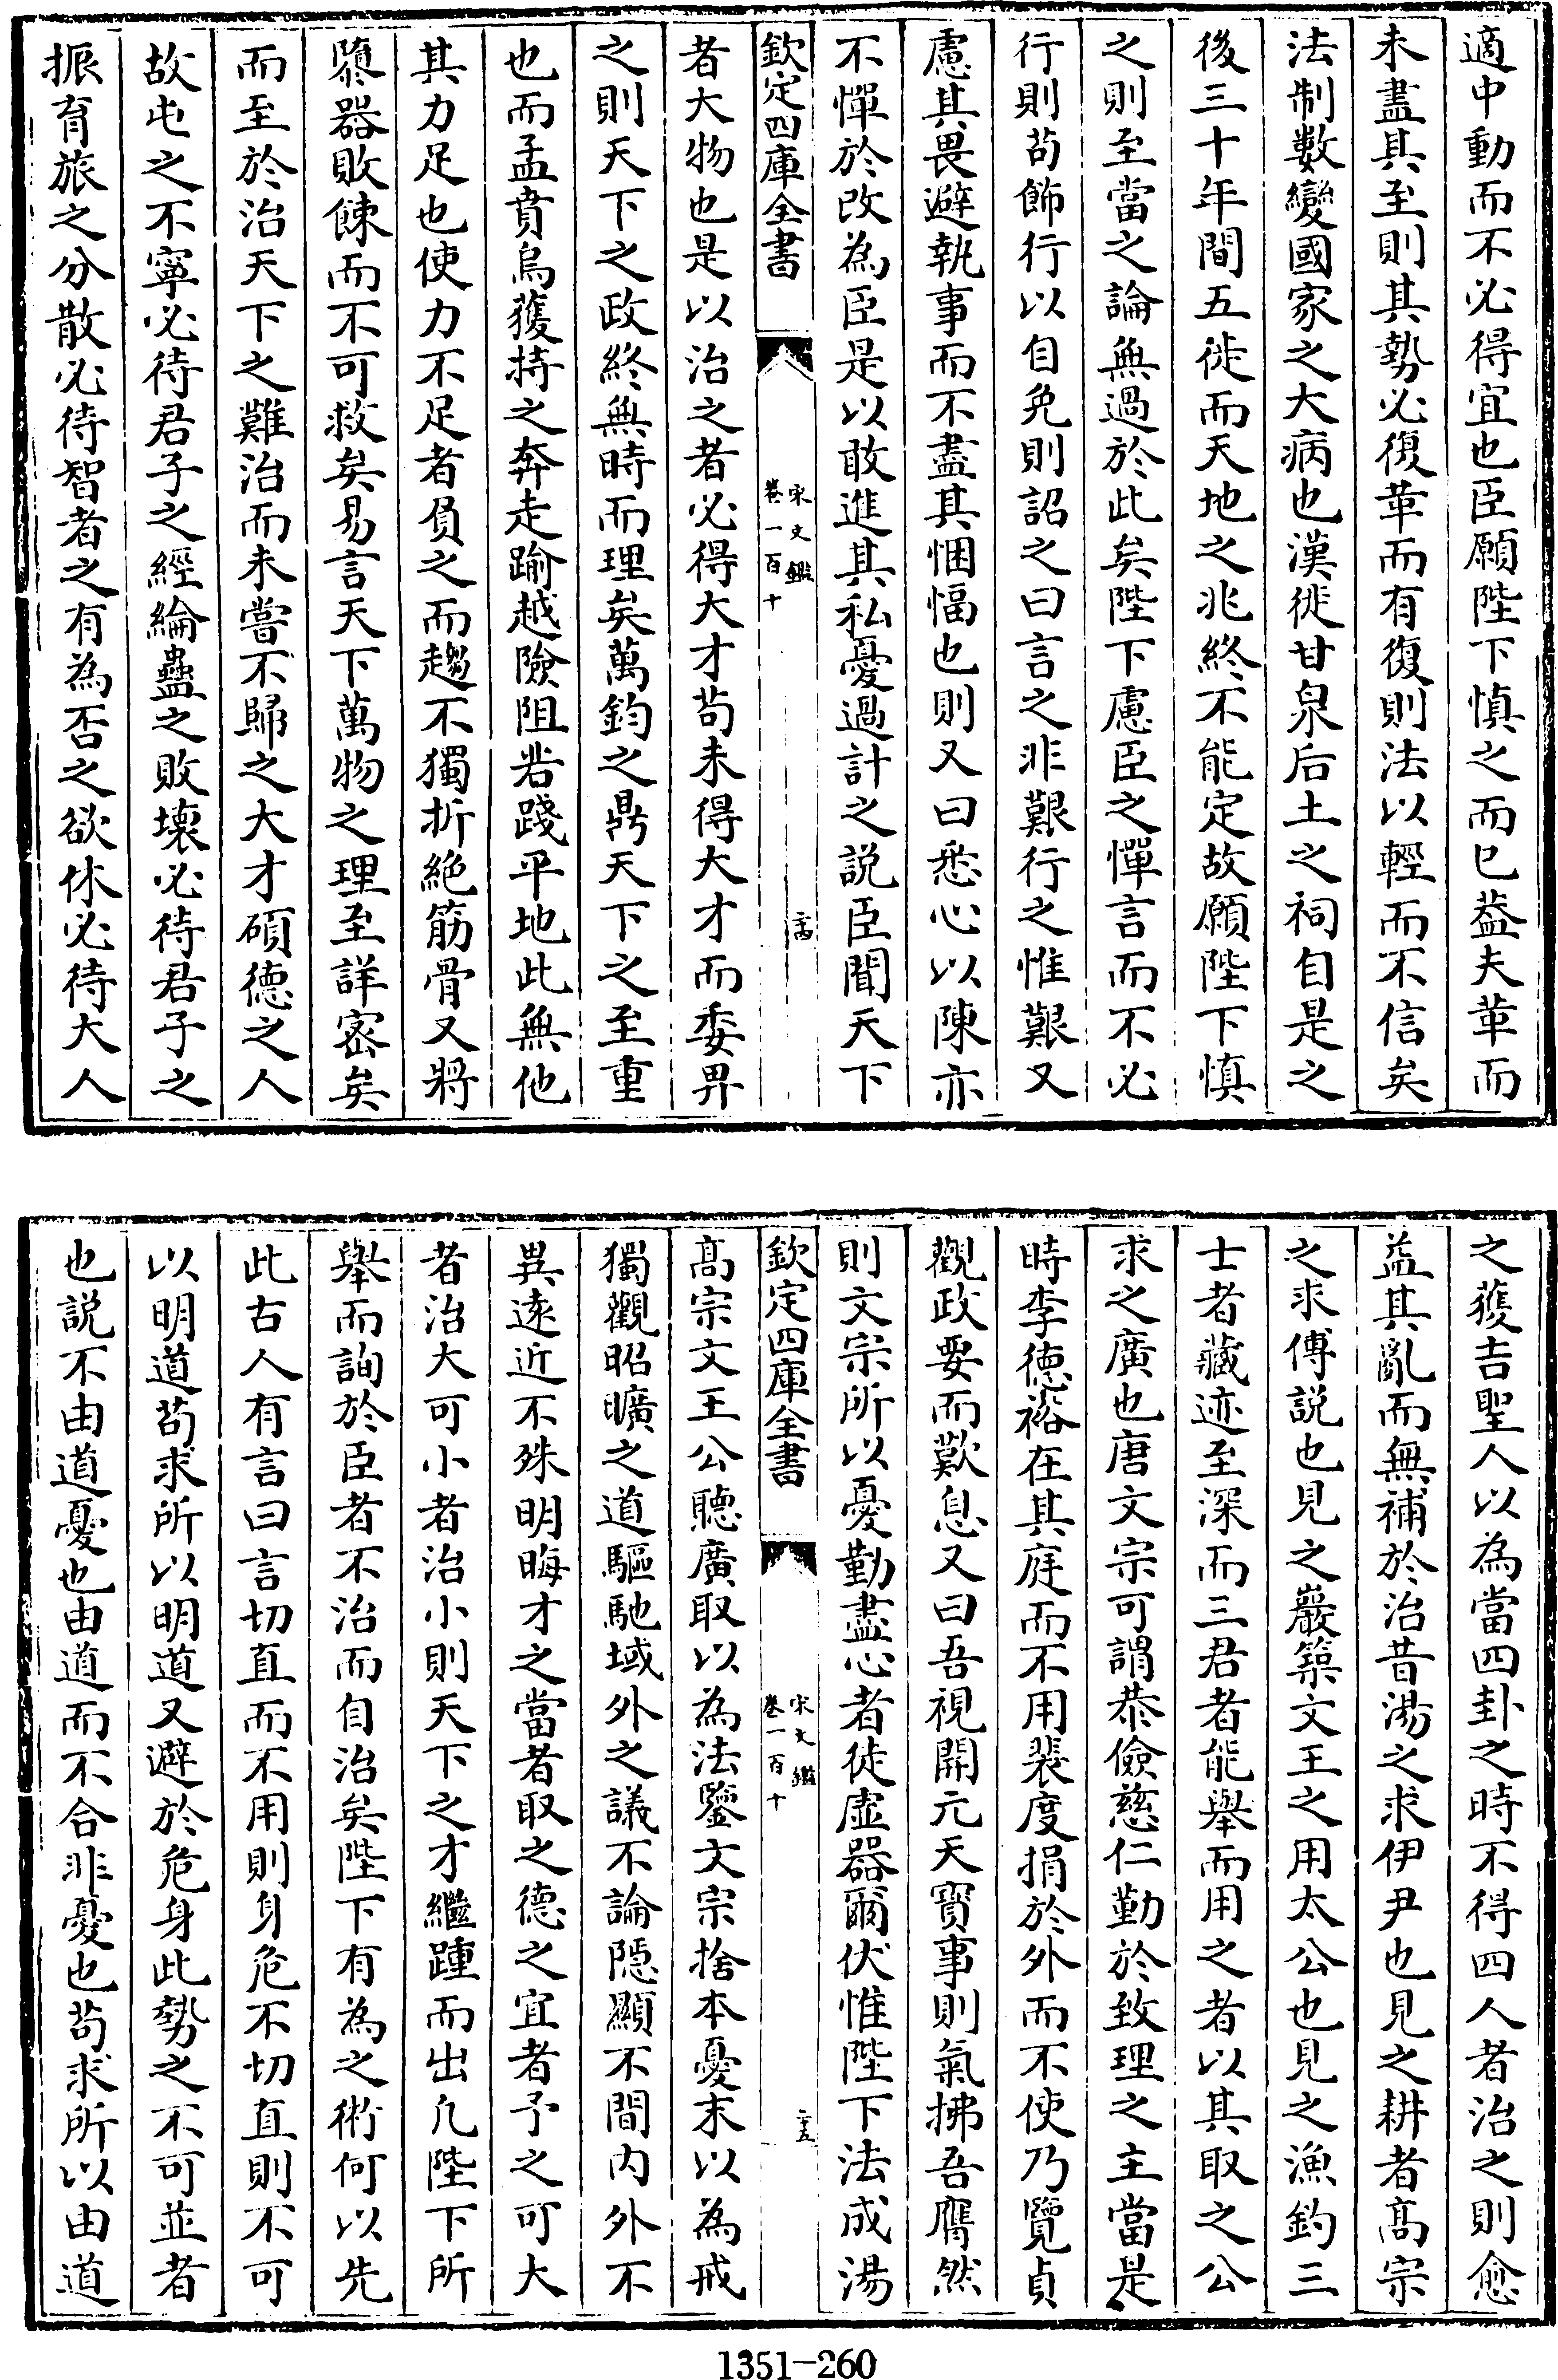 適中動而不必得宜也臣願陛下慎之而已葢夫革而
未盡其至則其勢必復革而有復則法以輕而不信矣
法制數變國家之大病也漢徙甘泉后土之祠自是之
後三十年間五徙而天地之兆終不能定故願陛下慎
之則至當之論無過於此矣陛下慮臣之憚言而不必
行則茍飾行以自免則詔之曰言之非艱行之惟艱又
慮其畏避執事而不盡其悃愊也則又曰悉心以陳亦
不憚於改為臣是以敢進其私憂過計之説臣聞天下
欽定四庫全書
宋文鑑
卷一百十
二十四
者大物也是以治之者必得大才茍未得大才而委畀
之則天下之政終無時而理矣萬鈞之鼎天下之至重
也而孟賁烏獲持之奔走踰越險阻若踐平地此無他
其力足也使力不足者負之而趨不獨折絶筋骨又將
隳器敗餗而不可救矣易言天下萬物之理至詳宻矣
而至於治天下之難治而未嘗不歸之大才碩德之人
故屯之不寧必待君子之經綸蠱之敗壊必待君子之
振育旅之分散必待智者之有為否之欲休必待大人
之獲吉聖人以為當四卦之時不得四人者治之則愈
益其亂而無補於治昔湯之求伊尹也見之耕者髙宗
之求傅説也見之巖築文王之用太公也見之漁釣三
士者藏迹至深而三君者能舉而用之者以其取之公
求之廣也唐文宗可謂恭儉慈仁勤於致理之主當是
時李德裕在其庭而不用裴度捐於外而不使乃覽貞
觀政要而歎息又曰吾視開元天寳事則氣拂吾膺然
則文宗所以憂勤盡心者徒虛器爾伏惟陛下法成湯
欽定四庫全書
宋文鑑
卷一百十
二十五
髙宗文王公聽廣取以為法鑒文宗捨本憂末以為戒
獨觀昭曠之道驅馳域外之議不論隠顯不間内外不
異逺近不殊明晦才之當者取之德之宜者予之可大
者治大可小者治小則天下之才繼踵而出凡陛下所
舉而詢於臣者不治而自治矣陛下有為之術何以先
此古人有言曰言切直而不用則身危不切直則不可
以明道茍求所以明道又避於危身此勢之不可並者
也説不由道憂也由道而不合非憂也茍求所以由道
1351-260